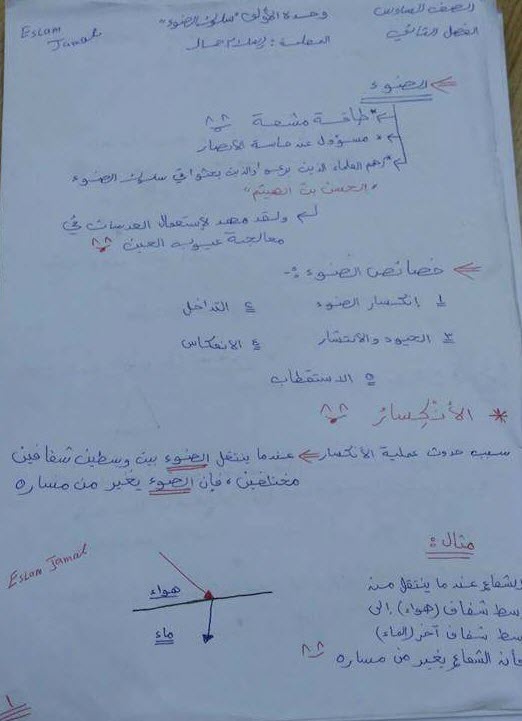 الصف السادس
الفصل الثاني
وحدة الأولى "سلوك الضوء"
المعلمة : إسلام جمال
Eslam Jamal
الضوء
* طاقة مشعة
* مسؤول عن حاسة الأبصار
* أهم العلماء الذين برعوا والذين بحثوا في سلوك الضوء
"الحسن بن الهيثم"
ولقد مهد لإستعمال العدسات في
معالجة عيوب العين
خصائص الضوء :-
١ إنكسار الضوء ٢ التداخل
٣ الحيود والانتشار ٤ الانعكاس
٥ الاستقطاب
* الأنْكِسارُ
سبب حدوث عملية الأنكسار عندما ينتقل الضوء بين وسطين شفافين
مختلفين، فإن الضوء يغير من مساره
مثال :
الشعاع عندما ينتقل من
وسط شفاف (هواء) إلى
وسط شفاف آخر (الماء)
فأن الشعاع يغير من مساره
Eslam Jamal
هواء
ماء
١